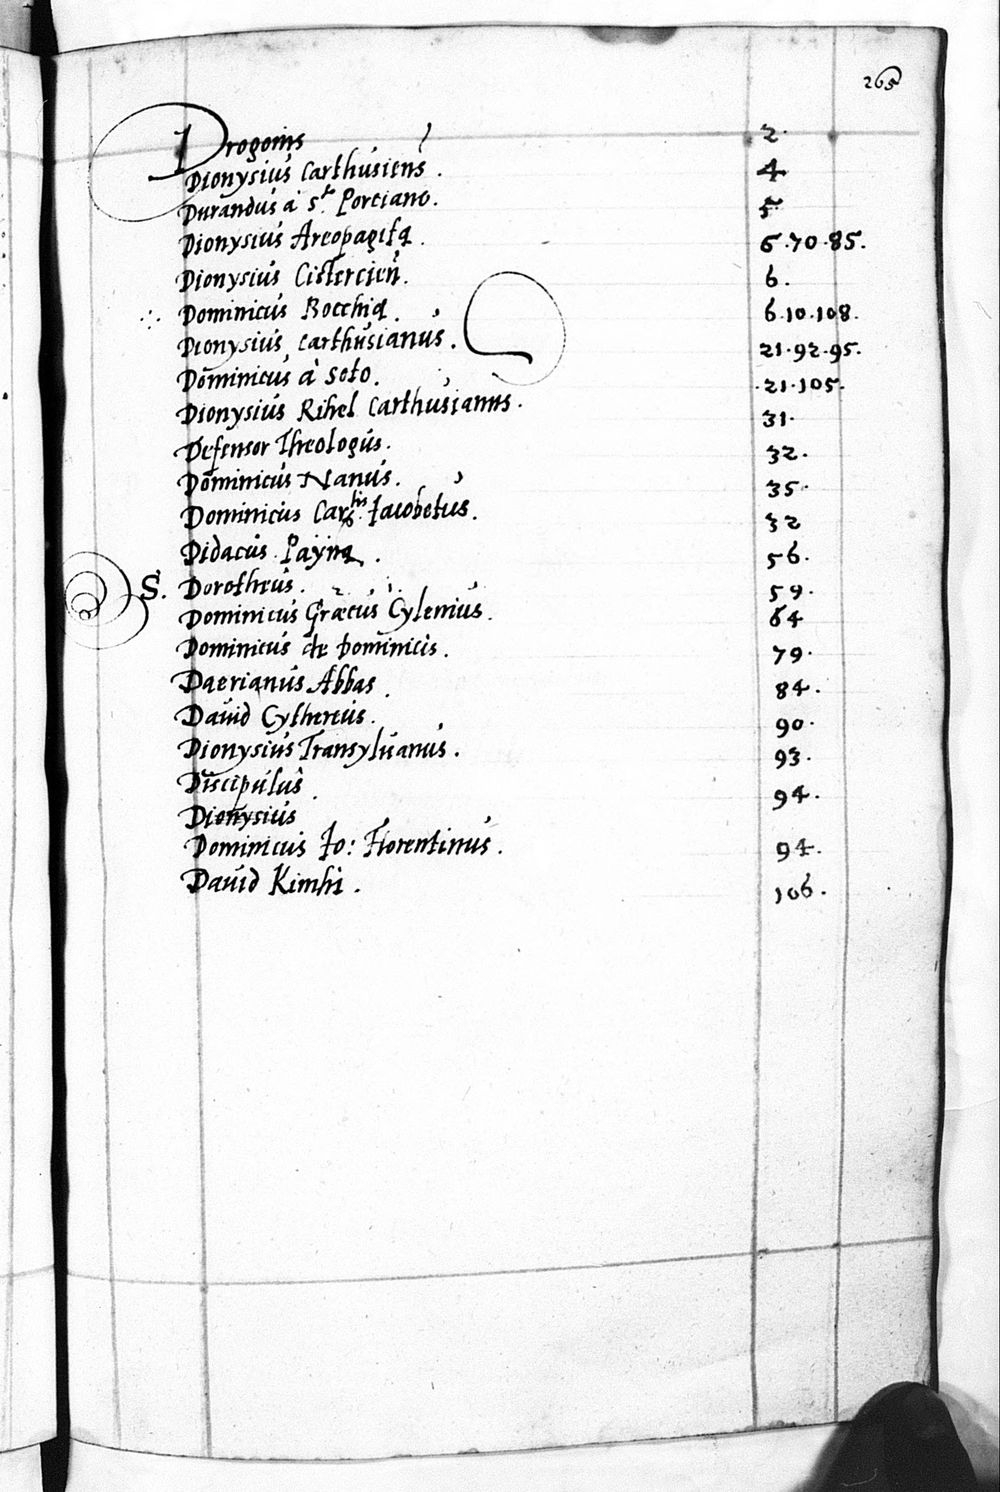 265
Drogonis 2.
Dionysius Carthusiens̉. 4
Durandus à S.to Portiano. 5.
Dionysius Areopagita. 6.70.85.
Dionysius Cistercien̉. 6.
∴ Dominicus Bocchia. 6.10.108.
Dionysius Carthusianus. 21.92.95.
Dominicus à Soto. .21.105.
Dionysius Rikel Carthusianus. 31.
Defensor Theologus. 32.
Dominicus Nanus. 35.
Dominicus Car.lis Iacobetus. 32
Didacus Payna. 56.
S. Dorotheus. 59.
Dominicus Græcus Cylenius. 64
Dominicus de Dominicis. 79.
Daerianus Abbas. 84.
Dauid Cythereus. 90.
Dionysius Transyluanus. 93.
Discipulus. 94.
Dionysius
Dominicus Io: Florentinus. 94.
Dauid Kimhi. 106.